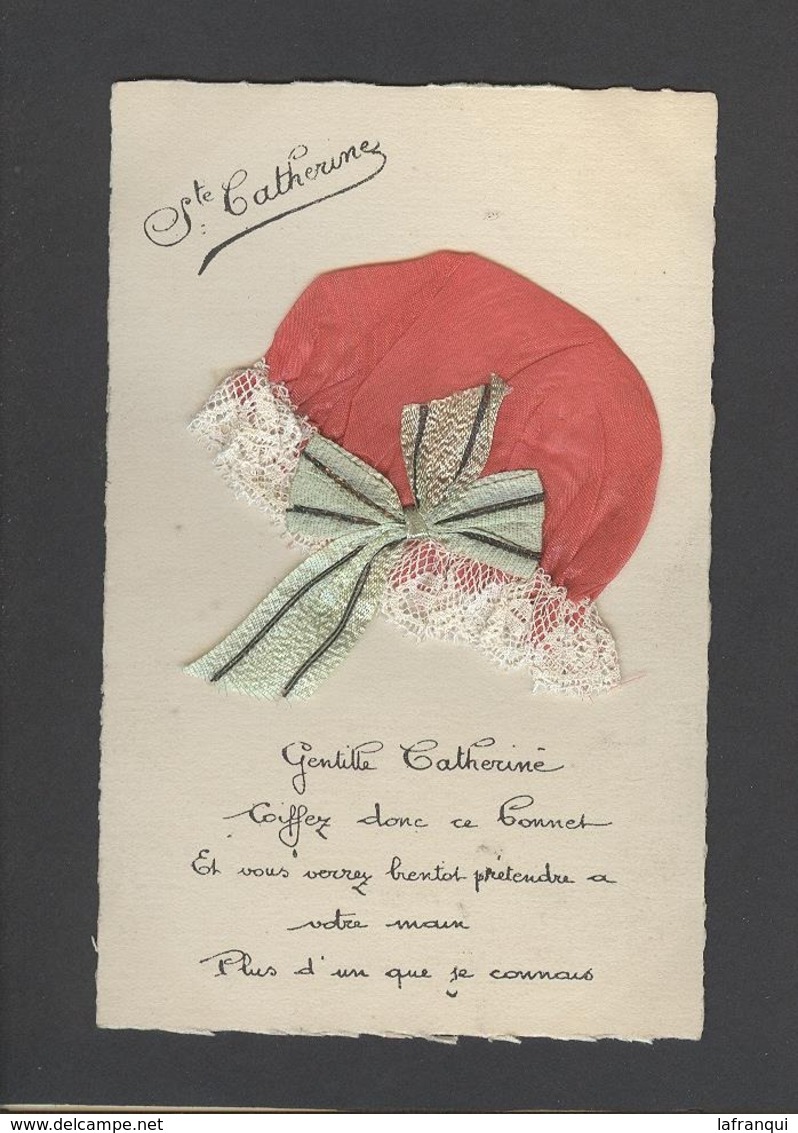 Ste Catherine
Gentille Catherine
Coiffez donc ce bonnet
Et vous verrez bientot prétendre a
votre main
Plus d'un que je connais
Delcampe.net
lafranqui